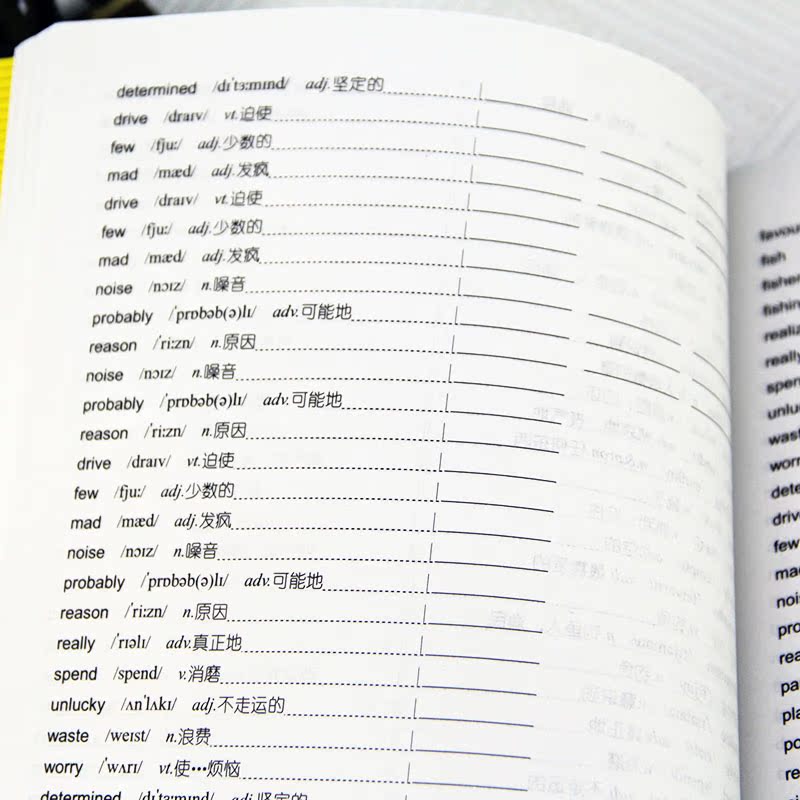 determined /dɪˈtɜːmɪnd/ adj.坚定的
drive /draɪv/ vt.迫使
few /fjuː/ adj.少数的
mad /mæd/ adj.发疯
drive /draɪv/ vt.迫使
few /fjuː/ adj.少数的
mad /mæd/ adj.发疯
noise /nɔɪz/ n.噪音
probably /ˈprɒbəb(ə)lɪ/ adv.可能地
reason /ˈriːzn/ n.原因
noise /nɔɪz/ n.噪音
probably /ˈprɒbəb(ə)lɪ/ adv.可能地
reason /ˈriːzn/ n.原因
drive /draɪv/ vt.迫使
few /fjuː/ adj.少数的
mad /mæd/ adj.发疯
noise /nɔɪz/ n.噪音
probably /ˈprɒbəb(ə)lɪ/ adv.可能地
reason /ˈriːzn/ n.原因
really /ˈrɪəlɪ/ adv.真正地
spend /spend/ v.消磨
unlucky /ʌnˈlʌkɪ/ adj.不走运的
waste /weɪst/ n.浪费
worry /ˈwʌrɪ/ vt.使…烦恼
determined /dɪˈtɜːmɪnd/ adj.坚定的
favou
fish
fisher
fishin
realiz
really
spen
unlu
wast
worr
dete
driv
few
ma
noi
pro
rea
pa
pla
po
re